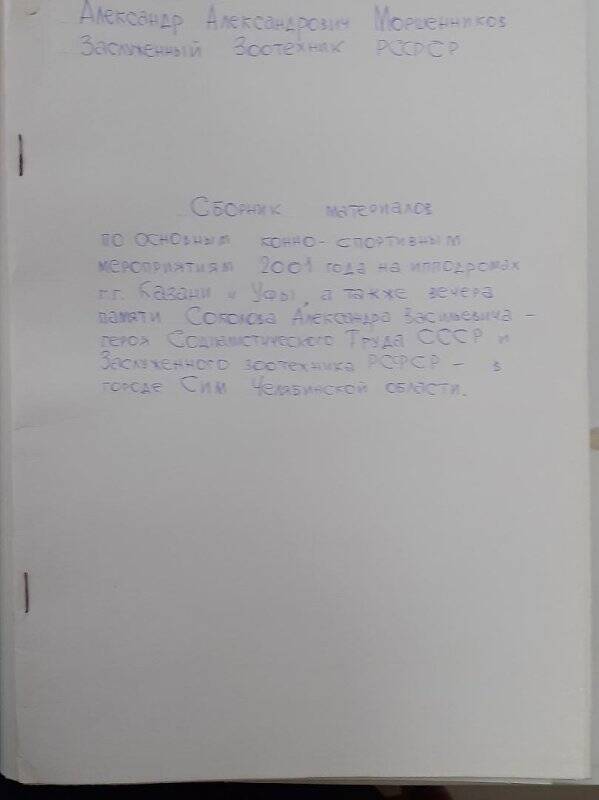 Александр Александрович Моршенников
Заслуженный Зоотехник РСФСР
Сборник материалов
по основным конно-спортивным
мероприятиям 2001 года на ипподромах
г.г. Казани и Уфы, а также вечера
памяти Соколова Александра Васильевича –
героя Социалистического Труда СССР и
Заслуженного зоотехника РСФСР – в
городе Сим Челябинской области.